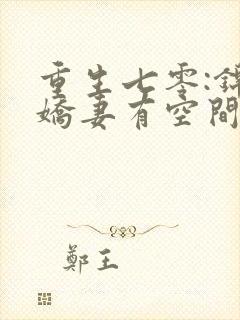 重生七零:錦
嬌妻有空間
鄭王